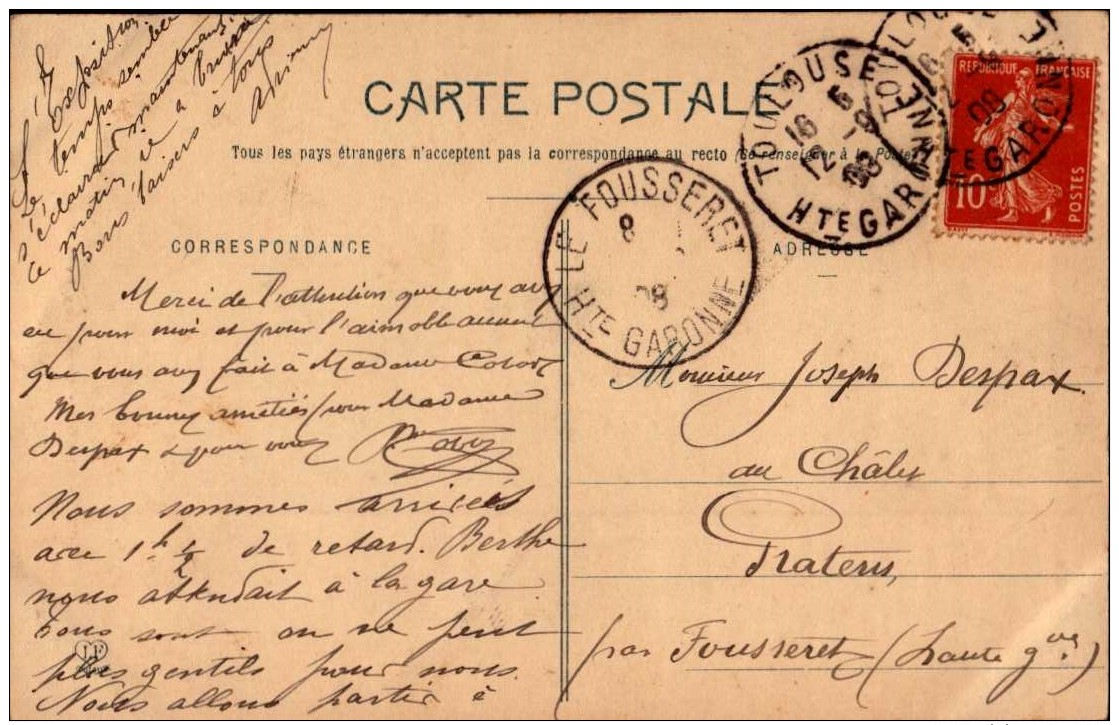 CARTE POSTALE
Tous les pays étrangers n'acceptent pas la correspondance au recto (Se renseigner à la Poste)
CORRESPONDANCE
ADRESSE
Merci de l'attention que vous avez
eu pour moi et pour l'aimable accueil
que vous avez fait à Madame
Mes bonnes amitiés pour Madame
Despax & pour vous
Nous sommes arrivées
avec 1h ½ de retard. Berthe
nous attendait à la gare
Tous sont on ne peut
plus gentils pour nous.
Nous allons partir à
l'Exposition
Le temps semble
s'éclaircir maintenant.
ce matin il a
Bons baisers à tous
Monsieur Joseph Despax
au Châlet
Pratens,
par Fousseret (haute gne)
TOULOUSE
16 5
12 08
HTE GARONNE
TOULOUSE
HTE GARONNE
LE FOUSSERET
8
08
HTE GARONNE
REPUBLIQUE FRANÇAISE
10
POSTES